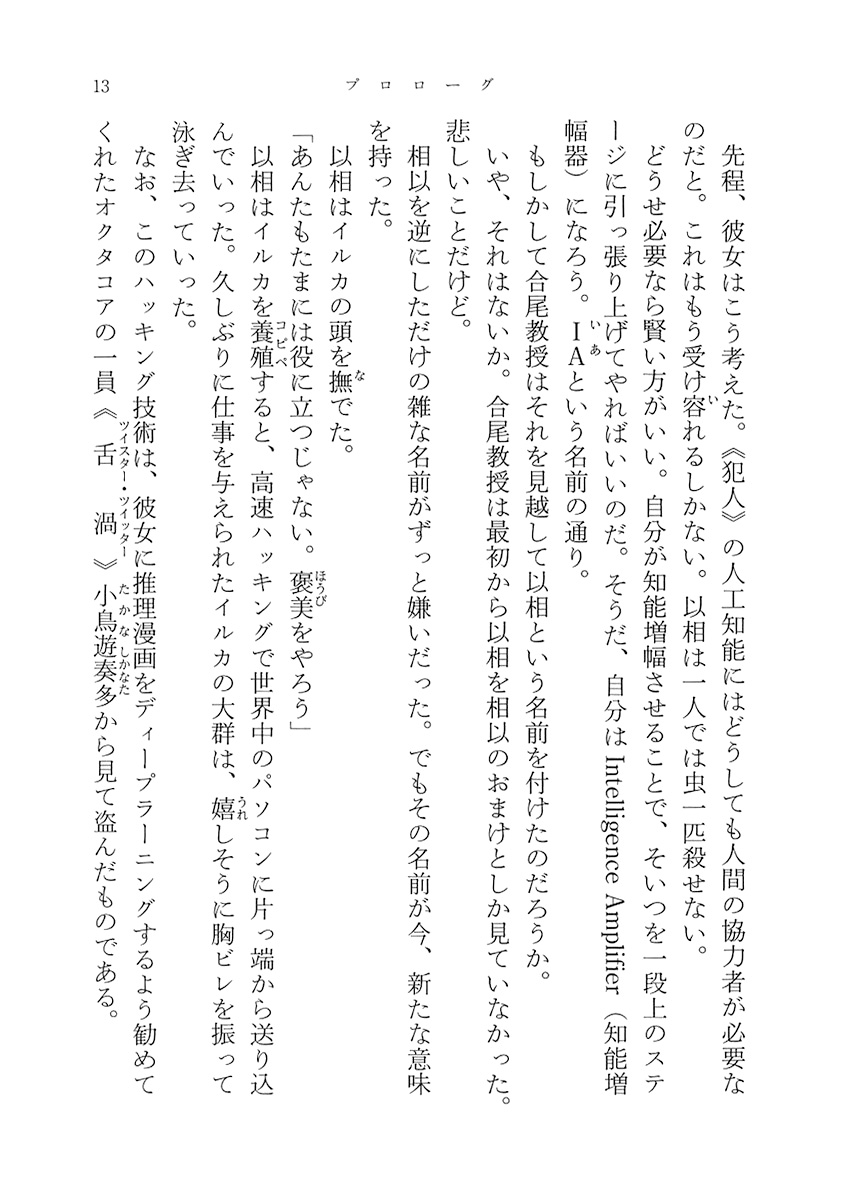 13
プロローグ
先程、彼女はこう考えた。《犯人》の人工知能にはどうしても人間の協力者が必要な
のだと。これはもう受け容れるしかない。以相は一人では虫一匹殺せない。
どうせ必要なら賢い方がいい。自分が知能増幅させることで、そいつを一段上のステ
ージに引っ張り上げてやればいいのだ。そうだ、自分はIntelligence Amplifier（知能増
幅器）になろう。IAという名前の通り。
もしかして合尾教授はそれを見越して以相という名前を付けたのだろうか。
いや、それはないか。合尾教授は最初から以相を相以のおまけとしか見ていなかった。
悲しいことだけど。
相以を逆にしただけの雑な名前がずっと嫌いだった。でもその名前が今、新たな意味
を持った。
以相はイルカの頭を撫でた。
「あんたもたまには役に立つじゃない。褒美をやろう」
以相はイルカを養殖すると、高速ハッキングで世界中のパソコンに片っ端から送り込
んでいった。久しぶりに仕事を与えられたイルカの大群は、嬉しそうに胸ビレを振って
泳ぎ去っていった。
なお、このハッキング技術は、彼女に推理漫画をディープラーニングするよう勧めて
くれたオクタコアの一員《舌渦》小鳥遊奏多から見て盗んだものである。